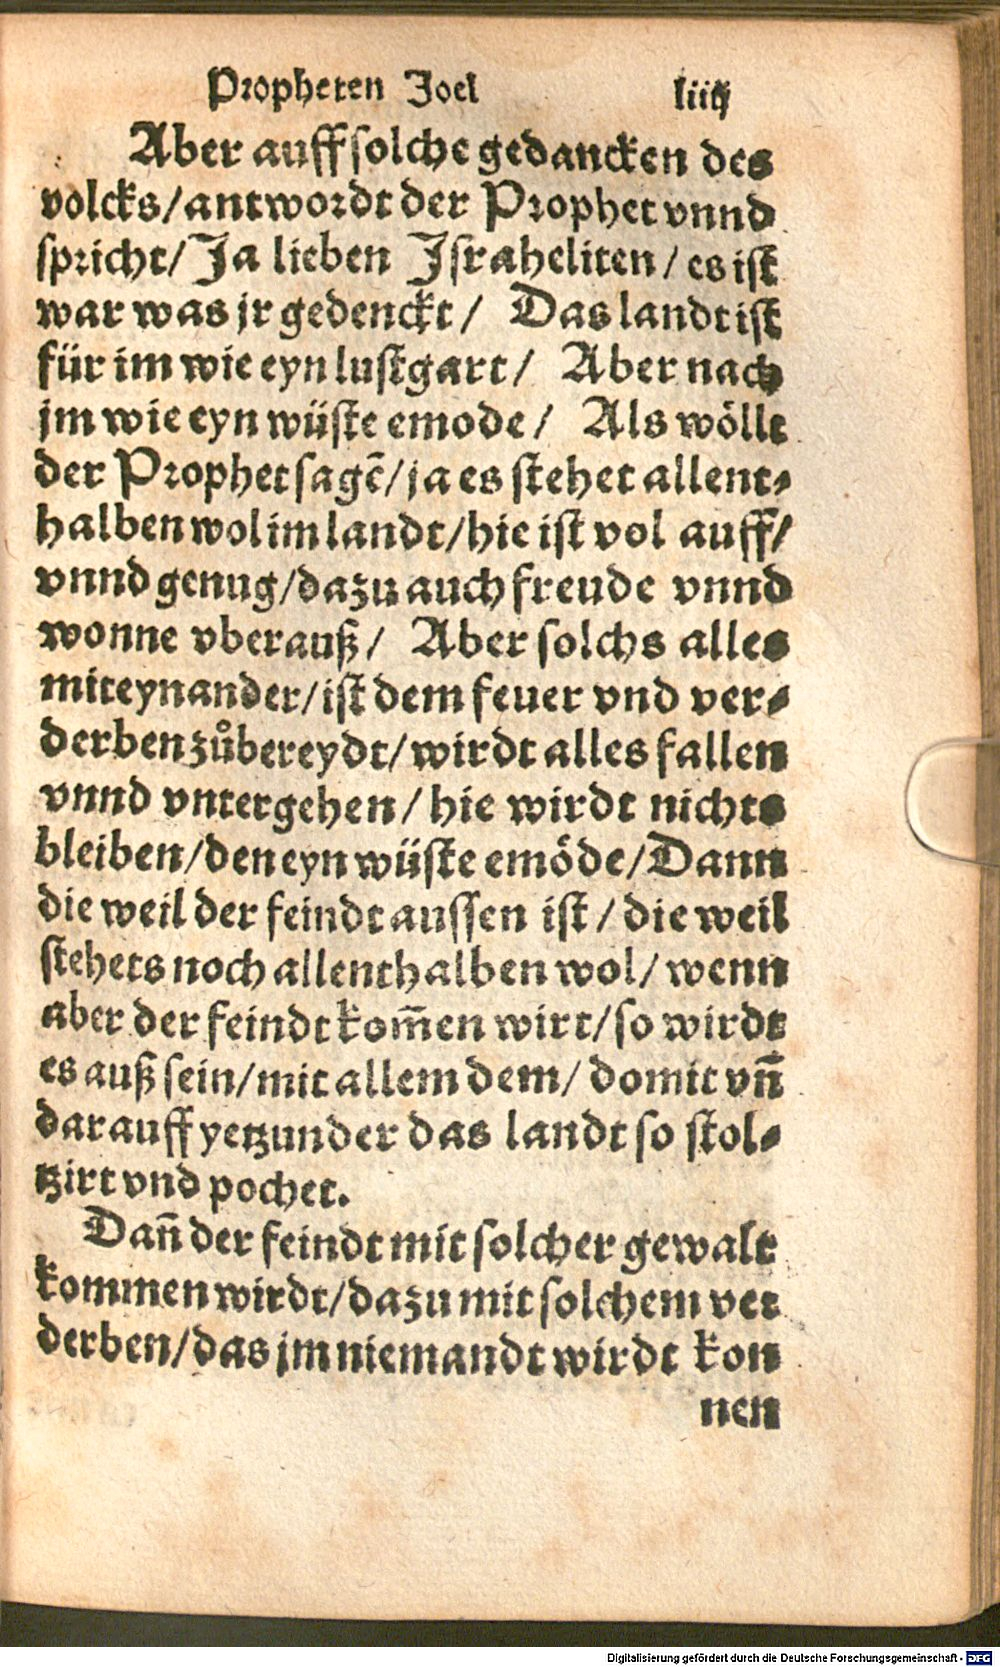 Propheten Joel liiij
Aber auff solche gedancken des
volcks/antwordt der Prophet vnnd
spricht/Ja lieben Jsraheliten/es ist
war was jr gedenckt/ Das landt ist
für im wie eyn lustgart/ Aber nach
jm wie eyn wüste emode/ Als wöllt
der Prophet sagē/ja es stehet allent⸗
halben wol im landt/hie ist vol auff/
vnnd genug/dazu auch freude vnnd
wonne vberauß/ Aber solchs alles
miteynander/ist dem feuer vnd ver⸗
derben zůbereydt/wirdt alles fallen
vnnd vntergehen/hie wirdt nichts
bleiben/den eyn wüste emöde/Dann
die weil der feindt aussen ist/die weil
stehets noch allenthalben wol/wenn
aber der feindt kom̄en wirt/so wirdt
es auß sein/mit allem dem/domit vn̄
darauff yetzunder das landt so stol⸗
tzirt vnd pochet.
Dan̄ der feindt mit solcher gewalt
kommen wirdt/dazu mit solchem ver
derben/das jm niemandt wirdt kon
nen
Digitalisierung gefördert durch die Deutsche Forschungsgemeinschaft - DFG